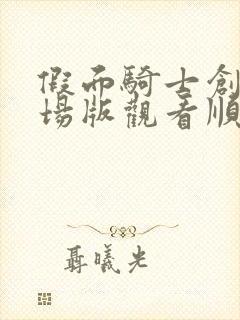 假面騎士創
場版觀看順
聶曦光